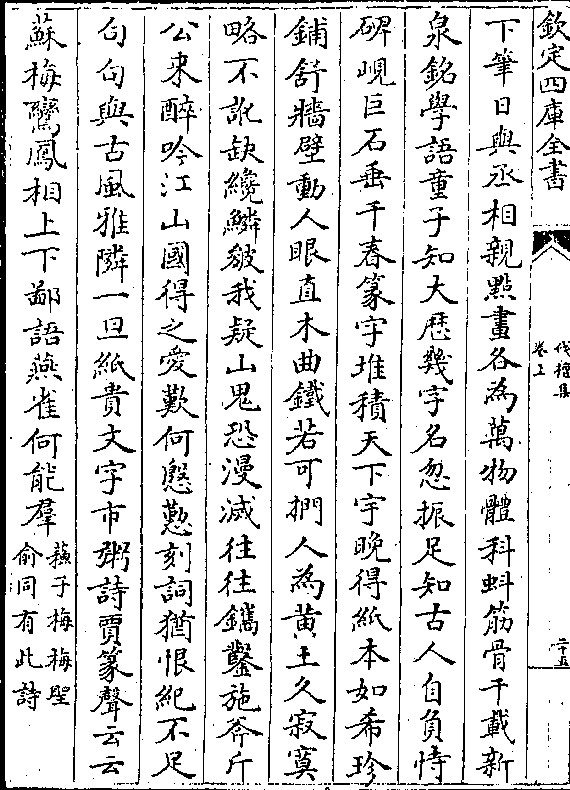 欽定四庫全書
伐檀集
卷上
二十五
下筆日與丞相親點畫各為萬物體科蚪筋骨千載新
泉銘學語童子知大厯幾字名忽振足知古人自負恃
碑峴巨石垂千春篆字堆積天下宇晚得紙本如希珍
鋪舒牆壁動人眼直木曲鐵若可捫人為黄土久寂寞
略不訛缺纔鱗皴我疑山鬼恐漫滅往往鐫鑿施斧斤
公来醉吟江山國得之愛歎何慇懃刻詞猶恨紀不足
句句與古風雅隣一旦紙貴文字市粥詩賈篆聲云云
蘇梅鸞鳳相上下鄙語燕雀何能羣
蘇子梅梅聖
俞同有此詩